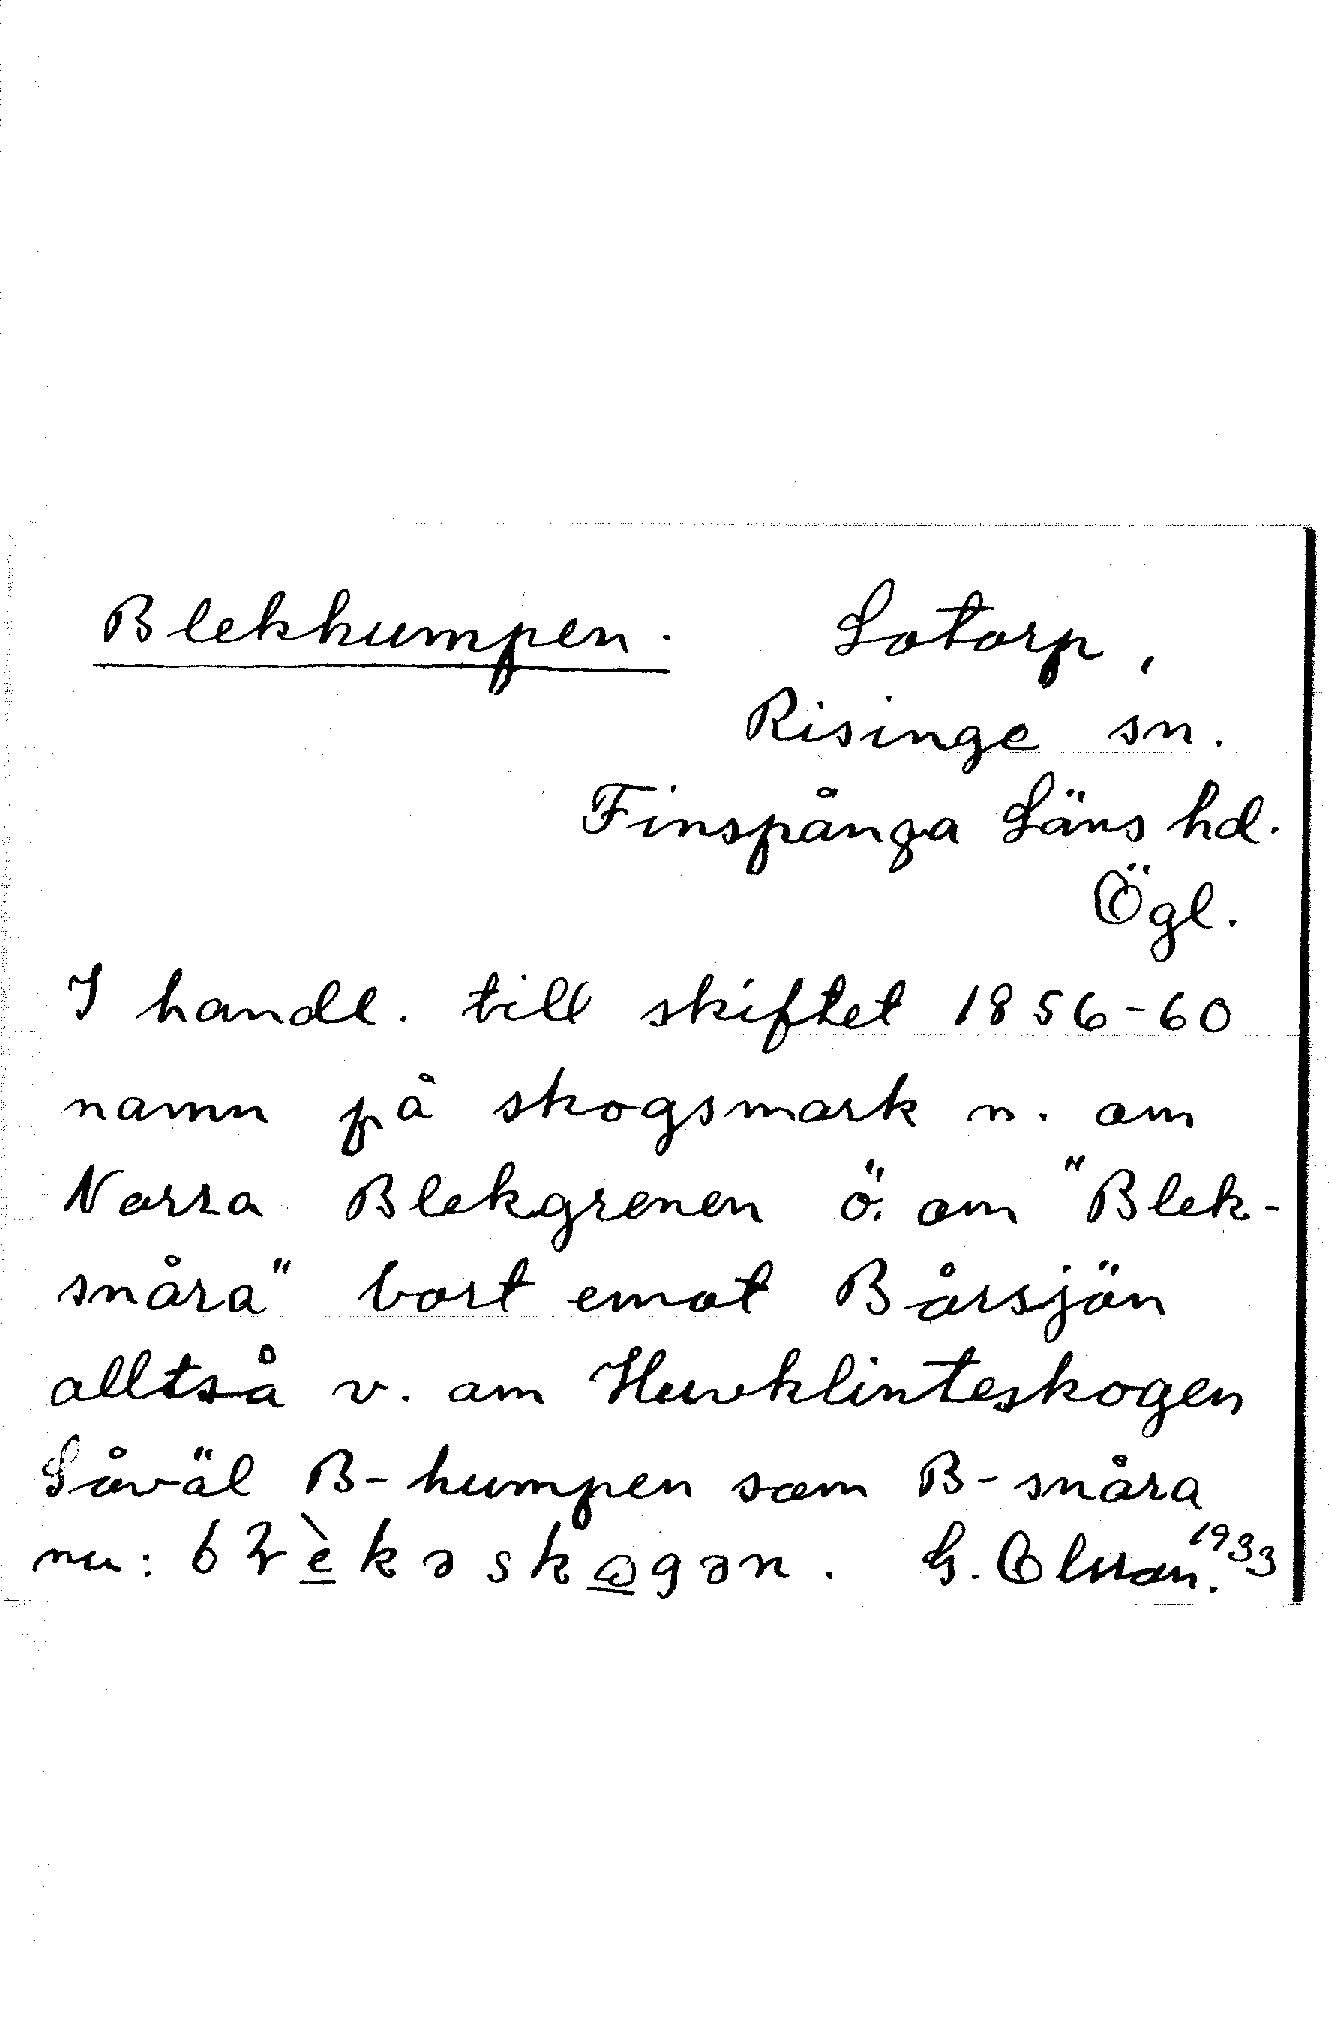 Blekhumpen. Lotorp,
Risinge sn.
Finspånga Läns hd.
Ögl.
I handl. till skiftet 1856-60
namn på skogsmark n. om
Norra Blekgrenen ö. om "Blek-
snåra" bort emot Bårsjön
alltså v. om Huvklinteskogen
Såväl B-humpen som B-snåra
nu: G. Olsson. 1933